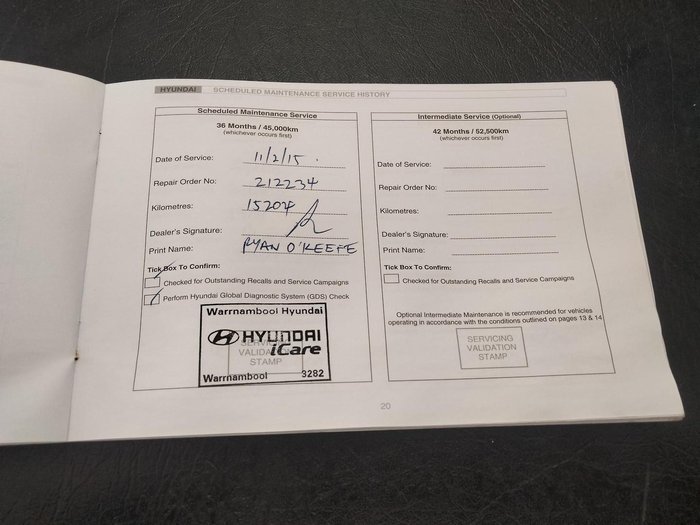 HYUNDAI SCHEDULED MAINTENANCE SERVICE HISTORY
Scheduled Maintenance Service
36 Months / 45,000km
(whichever occurs first)
Date of Service: 11/2/15.
Repair Order No: 212234
Kilometres: 15204
Dealer's Signature:
Print Name: RYAN O'KEEFE
Tick Box To Confirm:
Checked for Outstanding Recalls and Service Campaigns
Perform Hyundai Global Diagnostic System (GDS) Check
Warrnambool Hyundai
HYUNDAI
iCare
SERVICING
VALIDATION
STAMP
Warrnambool 3282
Intermediate Service (Optional)
42 Months / 52,500km
(whichever occurs first)
Date of Service:
Repair Order No:
Kilometres:
Dealer's Signature:
Print Name:
Tick Box To Confirm:
Checked for Outstanding Recalls and Service Campaigns
Optional Intermediate Maintenance is recommended for vehicles
operating in accordance with the conditions outlined on pages 13 & 14
SERVICING
VALIDATION
STAMP
20